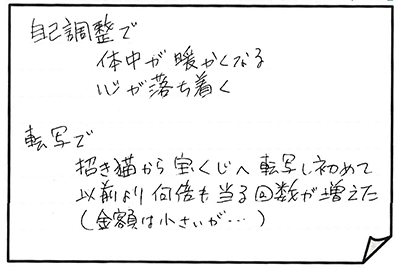 自己調整で
体中が暖かくなる
心が落ち着く
転写で
招き猫から宝くじへ転写し初めて
以前より何倍も当る回数が増えた
(金額は小さいが…)